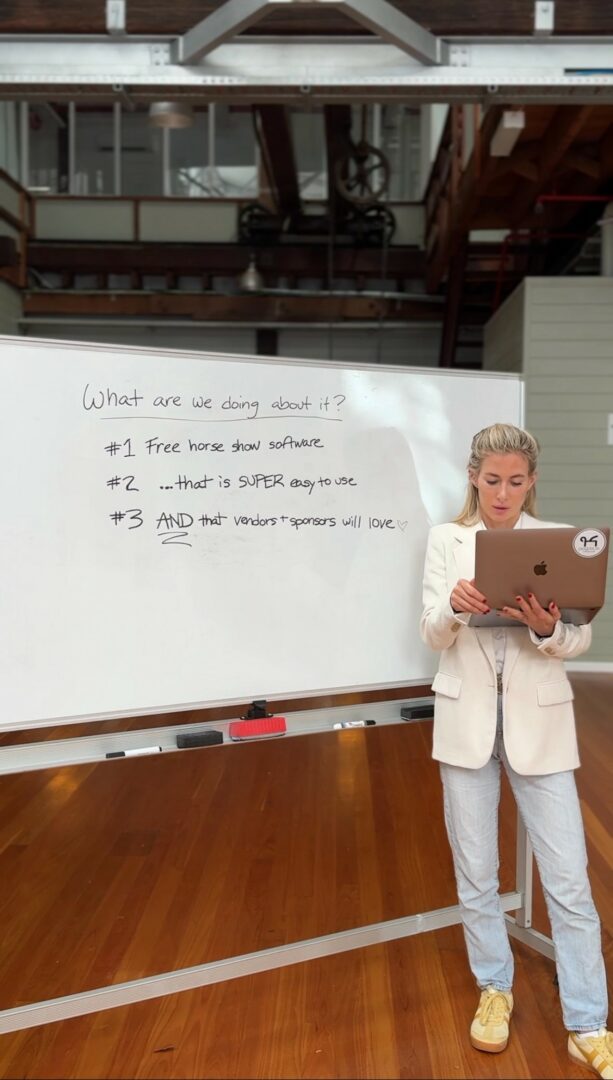 What are we doing about it?
#1 Free horse show software
#2 ...that is SUPER easy to use
#3 AND that vendors + sponsors will love ♡